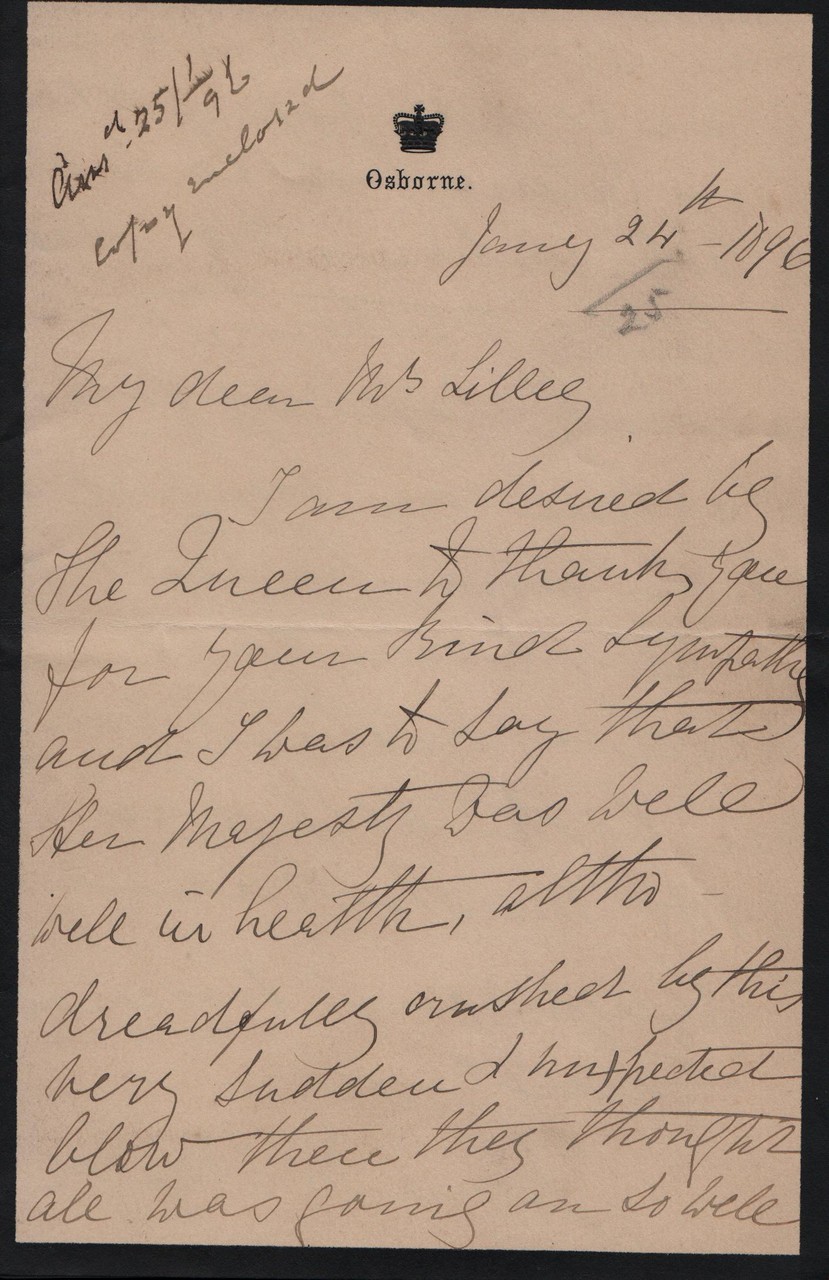 Ansd. 25/1/96
Copy enclosed
Osborne.
Jany 24th - 1896
/25
My dear Mrs Lilley
I am desired by
the Queen to thank you
for your kind sympathy
and I was to say that
Her Majesty was well
well in health, altho -
dreadfully crushed by this
very sudden & unxpected
blow then they thought
all was going on so well